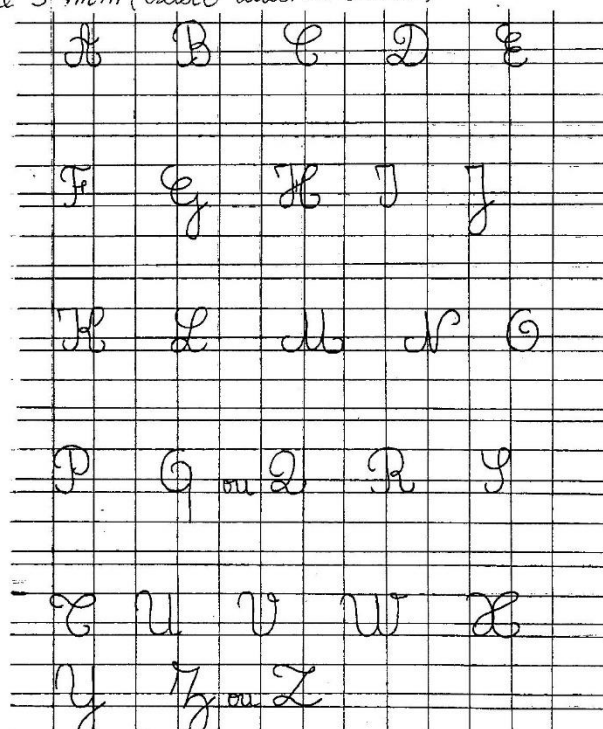 mm (
A B C D E
F G H I J
K L M N O
P Q ou Q R S
T U V W X
Y Z ou Z